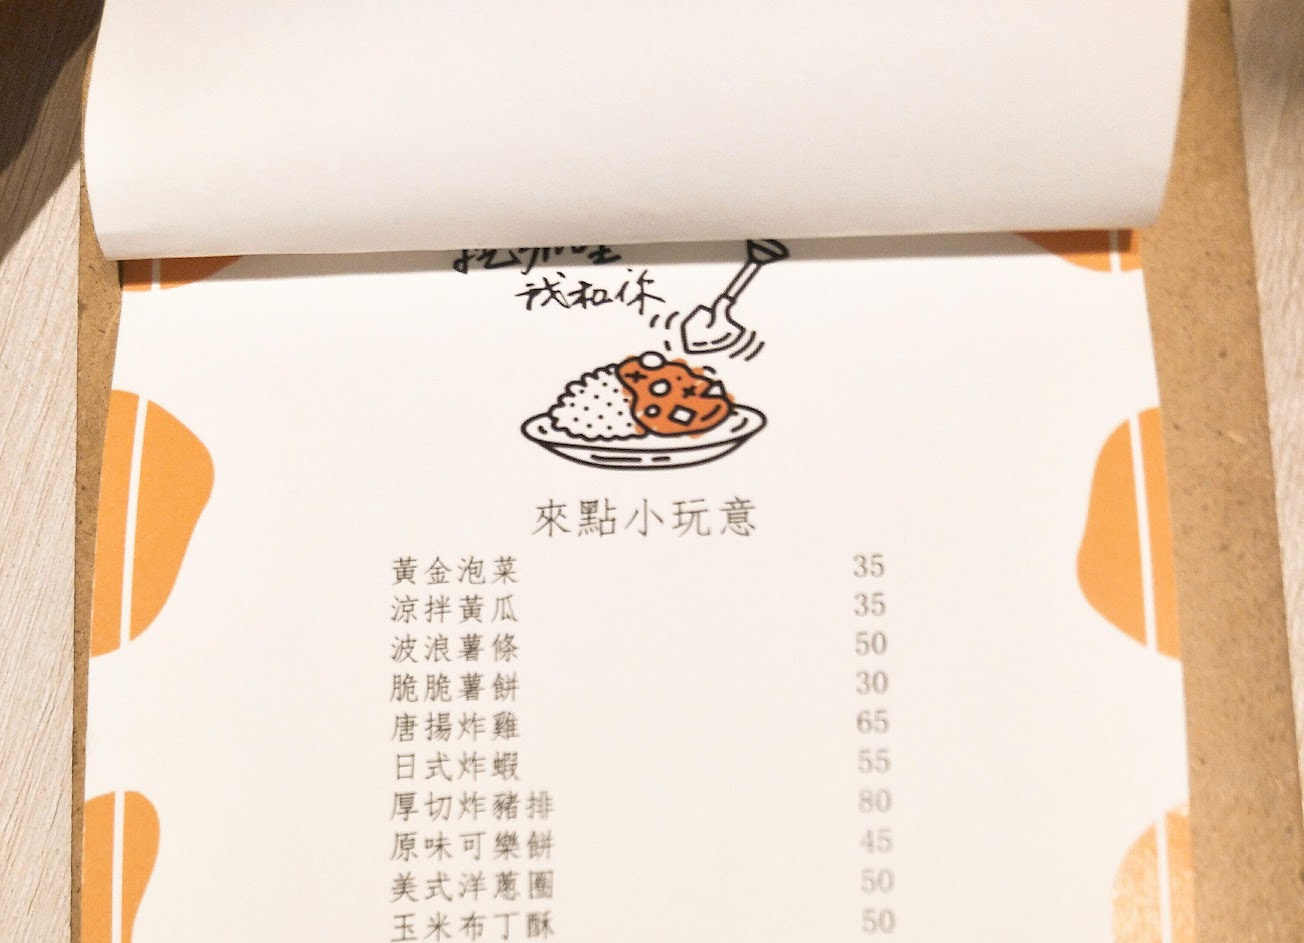 挖咖哩
我和你
來點小玩意
黃金泡菜 35
涼拌黃瓜 35
波浪薯條 50
脆脆薯餅 30
唐揚炸雞 65
日式炸蝦 55
厚切炸豬排 80
原味可樂餅 45
美式洋蔥圈 50
玉米布丁酥 50